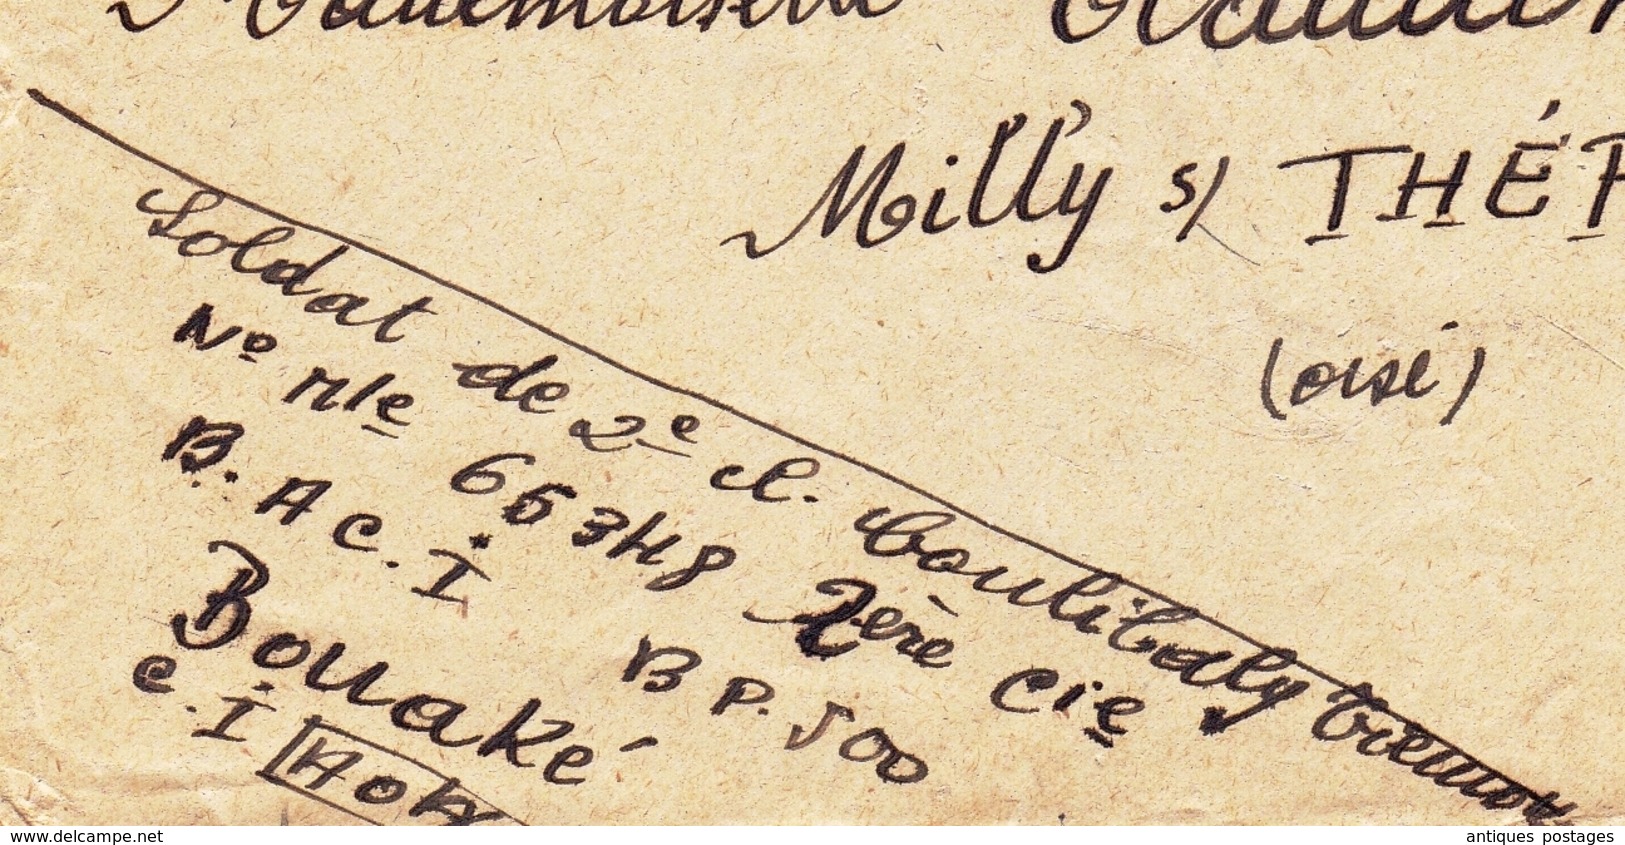 Mademoiselle
Milly s/ THÉ
(oisé)
Soldat de 2e cl. Coulibaly
No Mle 66348 2ère Cie.
B. A C. I B P. 500
Bouaké
C. I AOF
www.delcampe.net
antiques postages